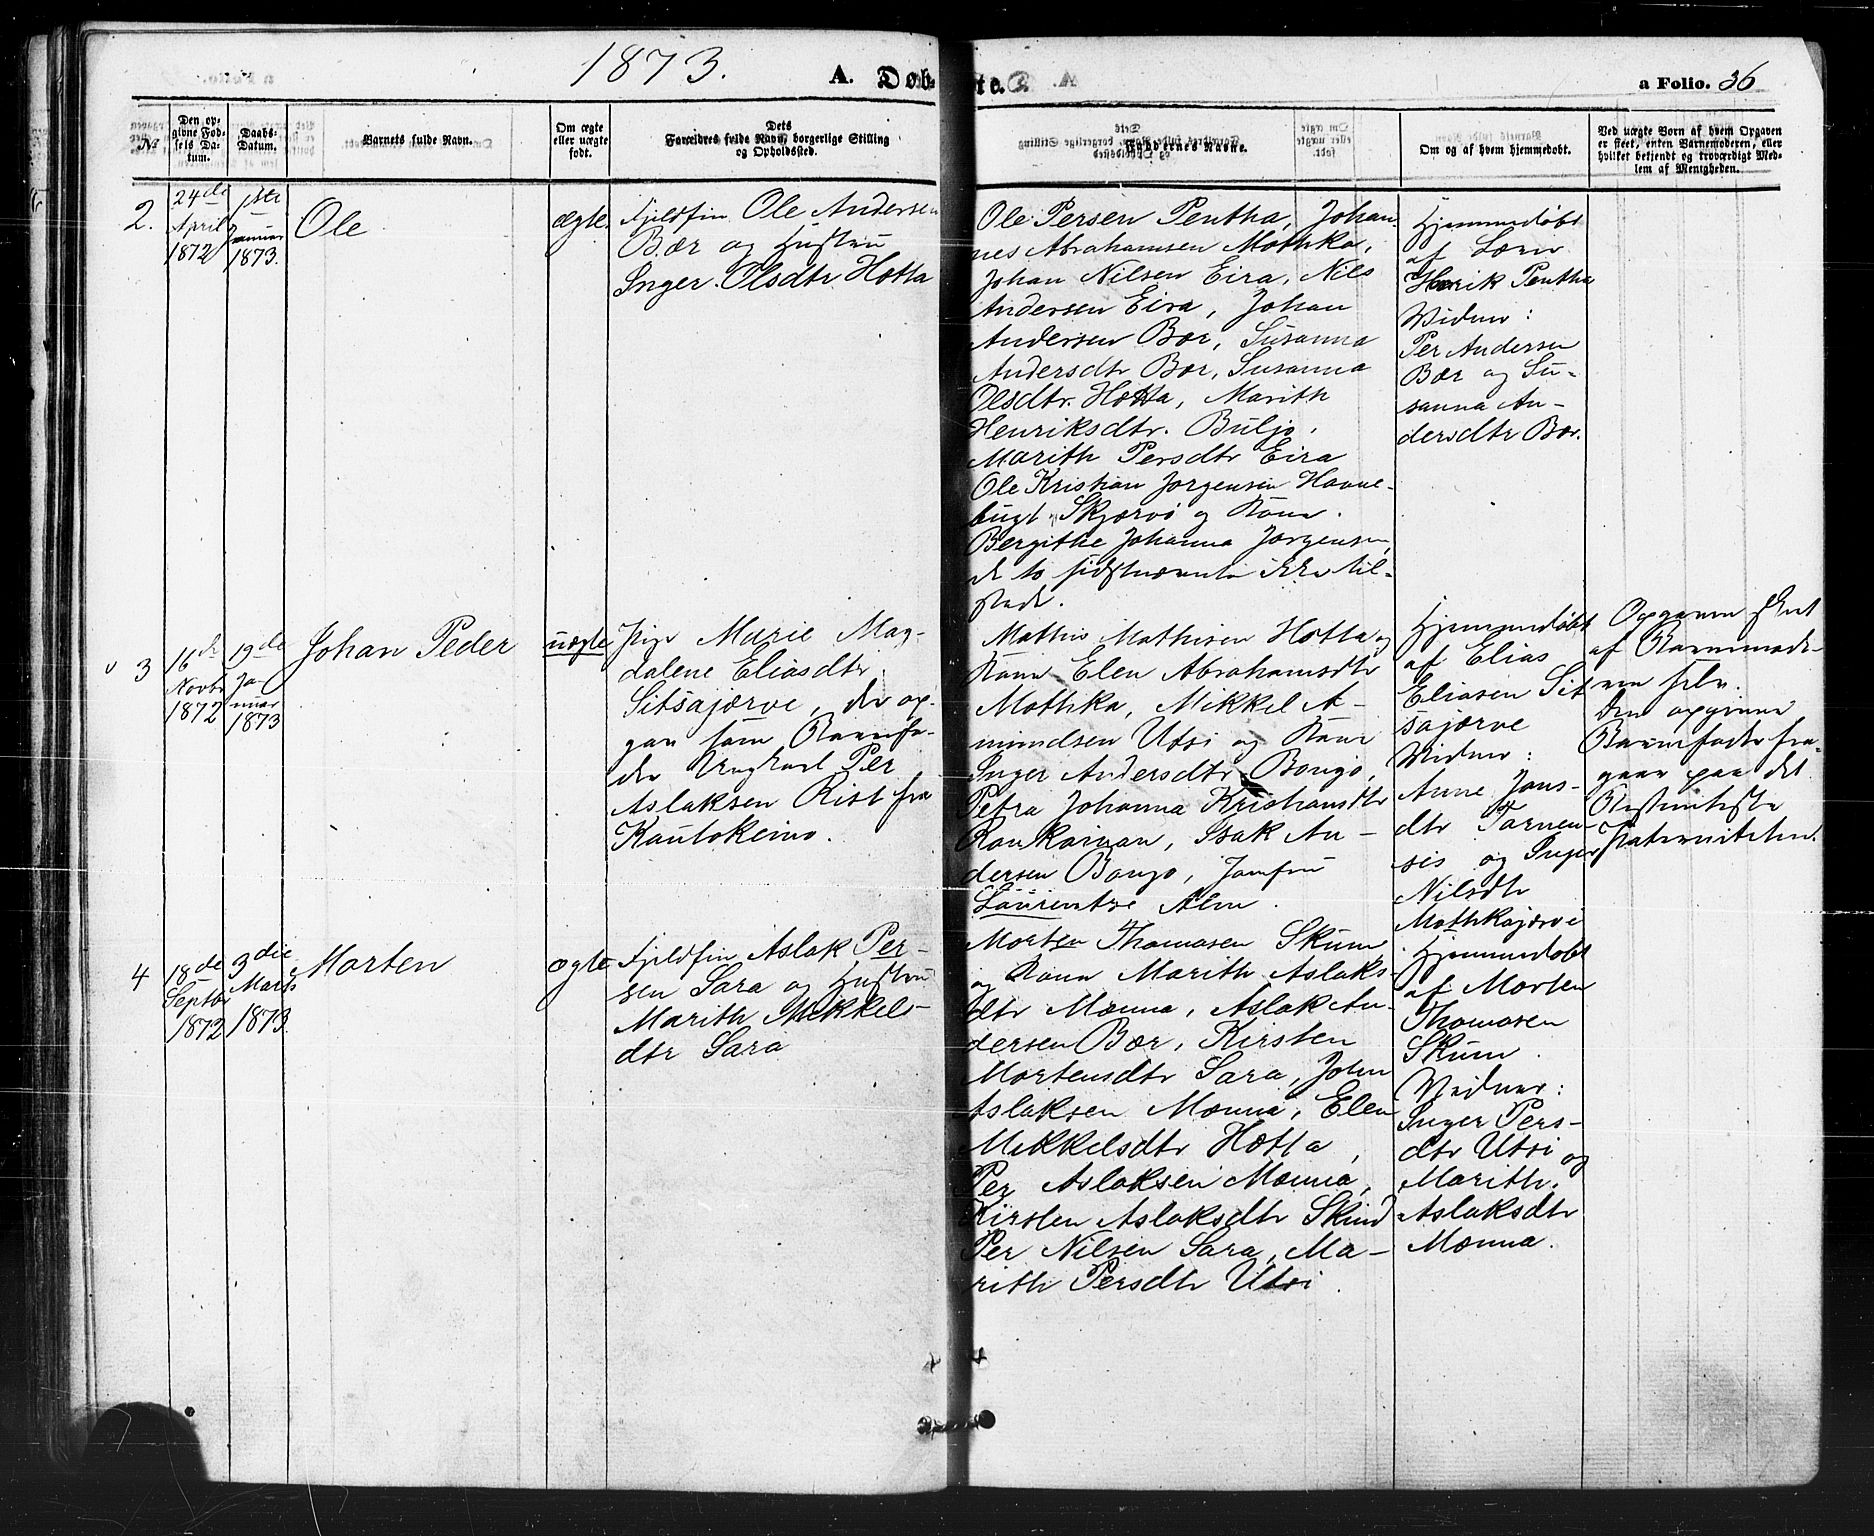 1873.
A. Døbte.
a Folio. 36
№
Den op-
givne Fød-
sels Da-
tum.
Daabs-
Datum.
Barnets fulde Navn.
Om ægte
eller uægte
født.
Dets
Forældres fulde Navn, borgerlige Stilling
og Opholdssted.
Faddernes Navne.
Om og af hvem hjemmedøbt.
Ved uægte Børn af hvem Opgaven
er skeet, enten Barnemoderen, eller
hvilket bekjendt og troværdigt Med-
lem af Menigheden.
2.
24de
April
1872
1ste
Januar
1873.
Ole
ægte.
Fjeldfin Ole Andersen
Bær og Hustru
Inger Olsdtr Hætta
Ole Persen Pentha, Johan-
nes Abrahamsen Mothka,
Johan Nilsen Eira, Nils
Andersen Eira, Johan
Andersen Bær, Susanna
Andersdtr Bær, Susanna
Olsdtr. Hætta, Marith
Henriksdtr. Buljo,
Marith Persdtr Eira
Ole Kristian Jørgensen Havne-
bugt Skjærvø og Kone
Bergithe Johanna Jørgensen,
de to sidstnævnte ikke til-
stede.
Hjemmedøbt
af Lærer
Henrik Pentha
Vidner:
Per Andersen
Bær og Su-
sanna An-
dersdtr Bær.
3
16de
Novbr
1872
19de
Ja-
nuar
1873
Johan Peder
uægte
Pige Marie Mag-
dalene Eliasdtr
Sitsajærve, der op-
gav som Barnefa-
der Ungkarl Per
Aslaksen Rist fra
Kautokeino.
Mathis Mathisen Hætta og
Kone Elen Abrahamsdtr
Mothka, Mikkel A-
mundsen Utsi og Kone
Inger Andersdtr Bongo,
Petra Johanna Kristiansdtr
Isak An-
dersen Bongo, Jomfru
Laurentze Alm.
Hjemmedøbt
af Elias
Eliasen Sit
sajærve
Vidner:
Anne Jons-
dtr Tornen-
sis og Inger
Nilsdtr
Mothkajærvi
Opgaven skeet
af Barnemode-
ren selv.
Den opgivne
Barnefader fra-
gaar paa det
Bestemteste
Paterniteten.
4
18de
Septbr
1872
3die
Marts
1873.
Morten
ægte
Fjeldfin Aslak Per-
sen Sara og Hustru
Marith Mikkels-
dtr Sara
Morten Thomasen Skum
og Kone Marith Aslaks-
dtr Mænna, Aslak An-
dersen Bær, Kirsten
Mortensdtr Sara, John
Aslaksen Mænna, Elen
Mikkelsdtr Hætta,
Per Aslaksen Mænna,
Kirsten Aslaksdtr Skind
Per Nilsen Sara, Ma-
rith Persdtr Utsi.
Hjemmedøbt
af Morten
Thomasen
Skum.
Vidner:
Inger Pers-
dtr Utsi og
Marith
Aslaksdtr
Mænna.